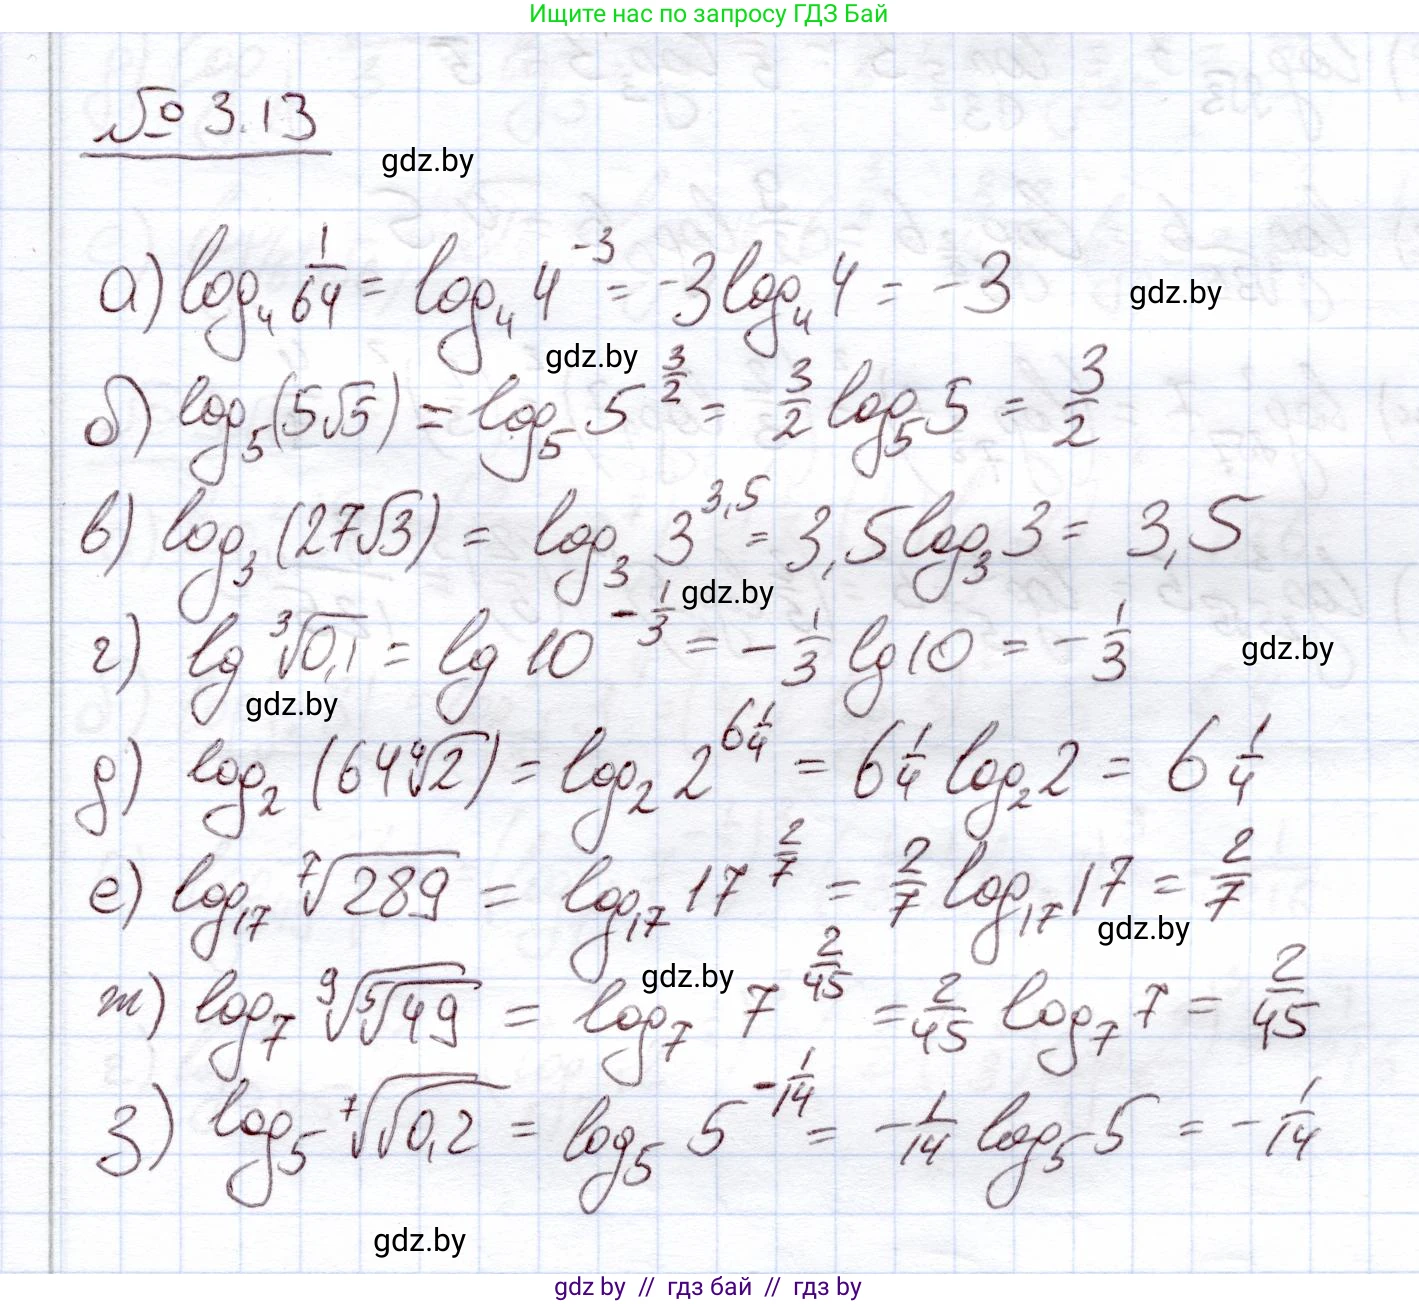 Ищите нас по запросу ГДЗ Бай
№ 3.13
gdz.by
а) log₄ 1/64 = log₄ 4⁻³ = -3 log₄ 4 = -3
gdz.by
gdz.by
б) log₅ (5√5) = log₅ 5^(3/2) = 3/2 log₅ 5 = 3/2
в) log₃ (27√3) = log₃ 3^(3,5) = 3,5 log₃ 3 = 3,5
gdz.by
г) lg ∛0,1 = lg 10^(-1/3) = -1/3 lg 10 = -1/3
gdz.by
gdz.by
д) log₂ (64 ∜2) = log₂ 2^(6 1/4) = 6 1/4 log₂ 2 = 6 1/4
е) log₁₇ ⁷√289 = log₁₇ 17^(2/7) = 2/7 log₁₇ 17 = 2/7
gdz.by
gdz.by
ж) log₇ ⁹√(⁵√49) = log₇ 7^(2/45) = 2/45 log₇ 7 = 2/45
з) log₅ ⁷√(√0,2) = log₅ 5^(-1/14) = -1/14 log₅ 5 = -1/14
gdz.by
gdz by // гдз бай // гдз by